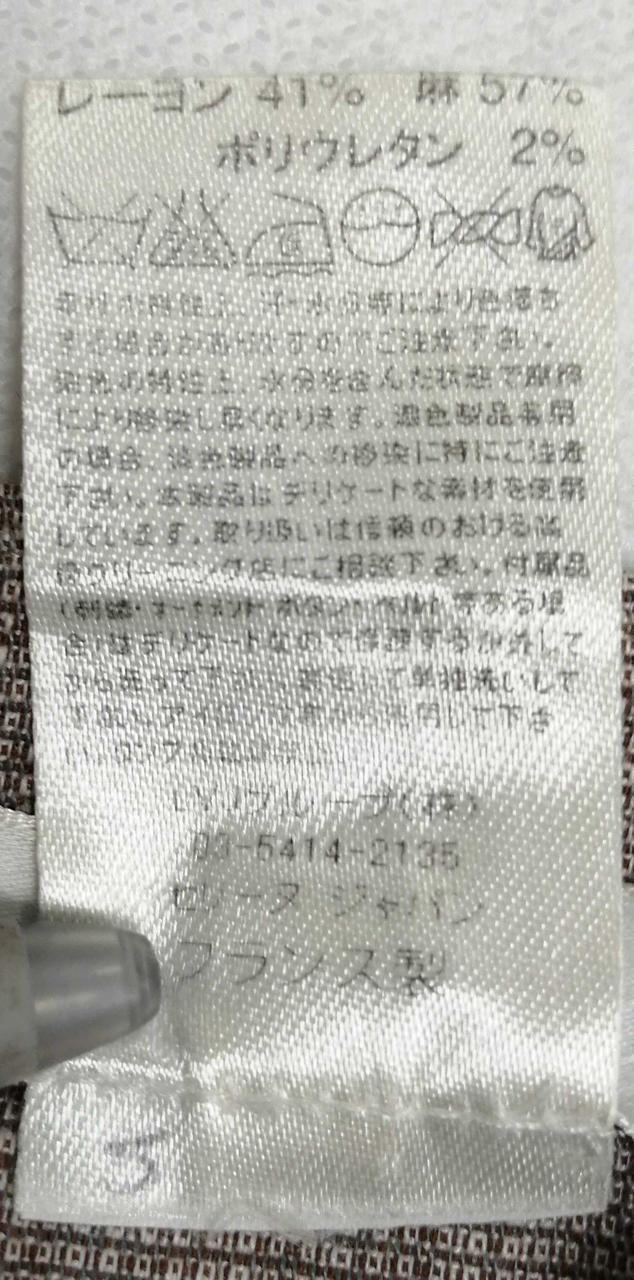 レーヨン 41% 麻 57%
ポリウレタン 2%
素材の特性上、汗・水分等により色落ち
する場合がありますのでご注意下さい。
染色の特性上、水分を含んだ状態で摩擦
により移染し易くなります。濃色製品着用
の場合、淡色製品への移染に特にご注意
下さい。本製品はデリケートな素材を使用
しています。取り扱いは信頼のおける高
級クリーニング店にご相談下さい。付属品
(刺繍・オーナメント・ボタン・ベルト等ある場
合)はデリケートなので保護するか外して
から洗って下さい。裏返して単独洗いして
アイロン
い。タンブル
LVJグループ(株)
03-5414-2135
セリーヌ ジャパン
フランス製